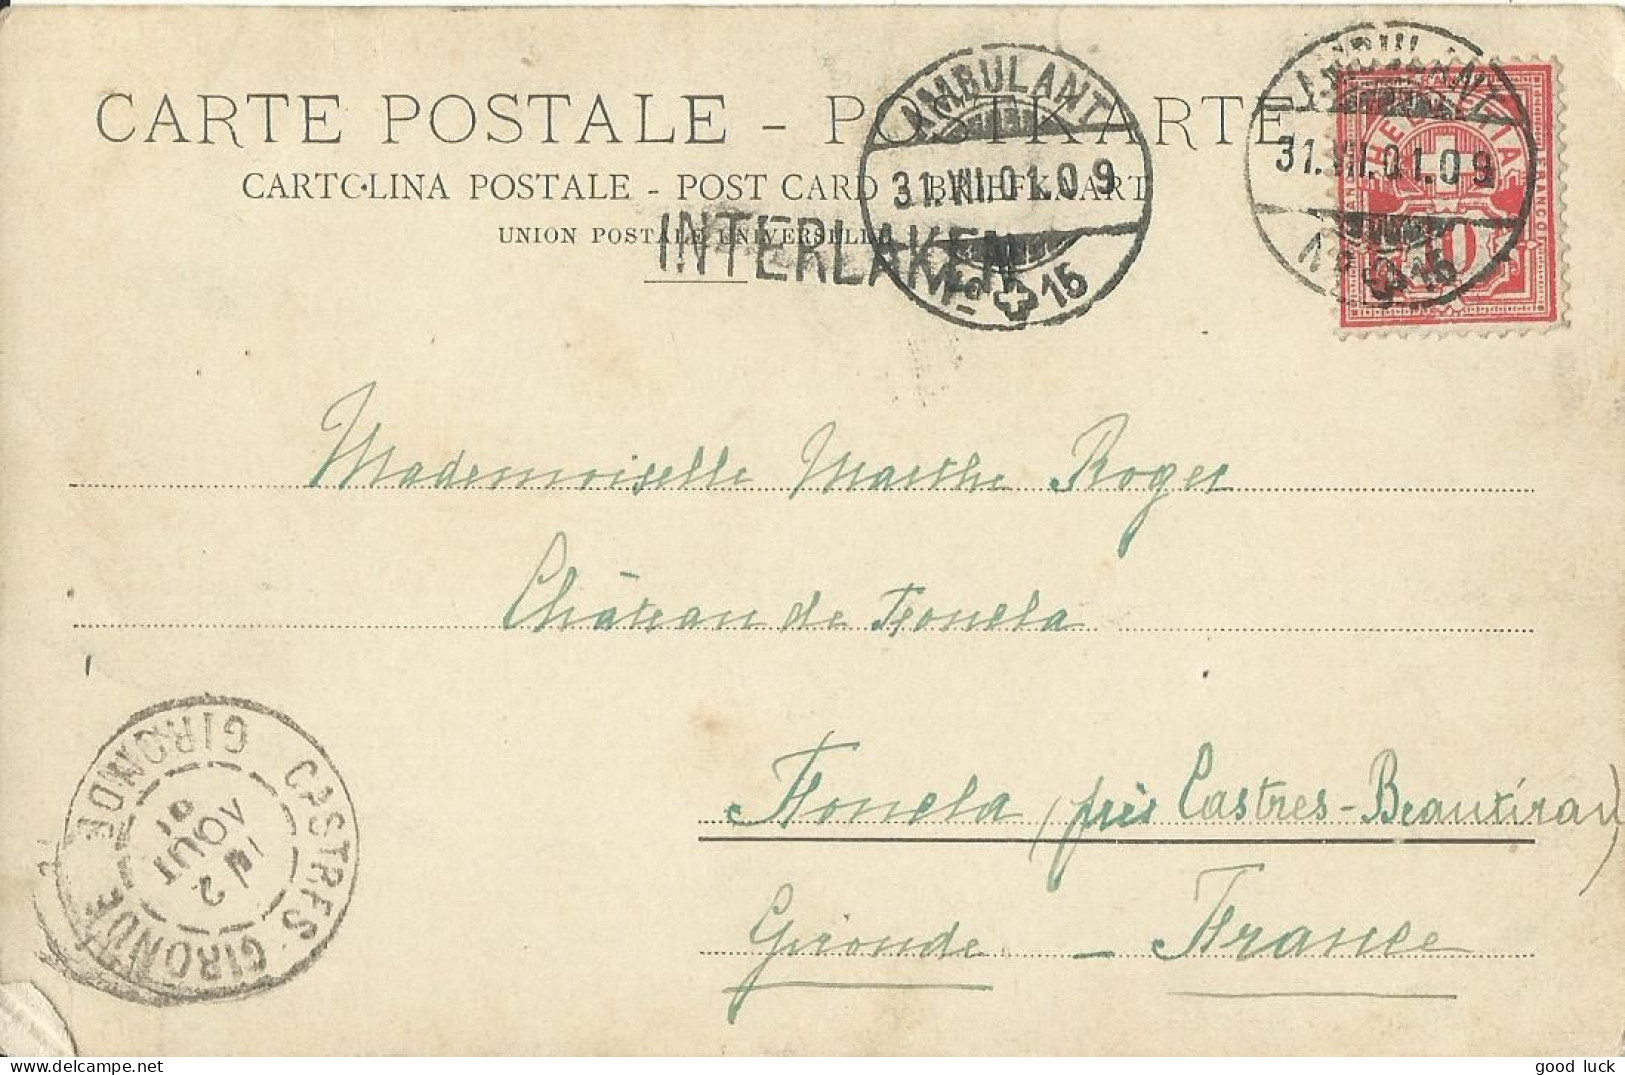 CARTE POSTALE - POSTKARTE
CARTOLINA POSTALE - POST CARD - BRIEFKAART
UNION POSTALE UNIVERSELLE
INTERLAKEN
AMBULANT
31.VII.01.09
No 15
AMBULANT
31.VII.01.09
No 15
HELVETIA
FRANCO
10
Mademoiselle Marthe Roger
Château de Foncla
Foncla (près Castres-Beautiran)
Gironde - France
CASTRES-GIRONDE
GIRONDE
2
AOUT
01
good luck